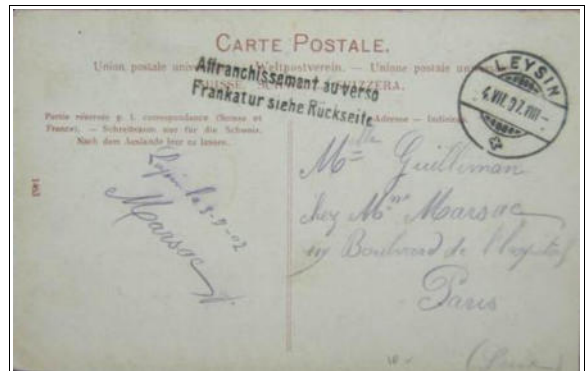 CARTE POSTALE.
Union postale universelle. — Weltpostverein. — Unione postale universale.
SUISSE. SCHWEIZ. SVIZZERA.
Affranchissement au verso
Frankatur siehe Rückseite
LEYSIN
4.VII.07.VIII-
Partie réservée p. l. correspondance (Suisse et
France). — Schreibraum nur für die Schweiz.
Nach dem Auslande leer zu lassen.
Adresse —
Marsac
Mlle Guilliman
chez Mme Marsac
Boulevard de l'hopital
Paris